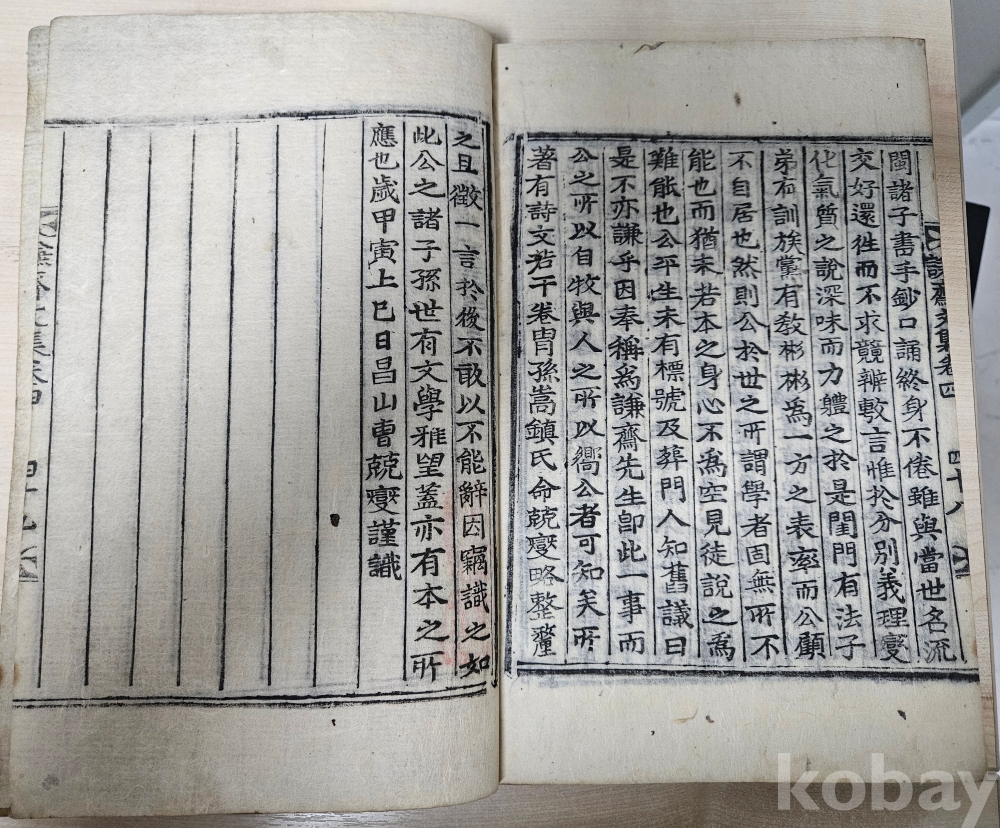 謙齋文集卷四 四十八
閩諸子書手鈔口誦終身不倦雖與當世名流
交好還徃而不求競辨敷言惟於分別義理變
化氣質之說深味而力軆之於是閨門有法子
弟有訓族黨有敎彬彬爲一方之表率而公顧
不自居也然則公於世之所謂學者固無所不
能也而猶未若本之身心不爲空見徒說之爲
難能也公平生未有標號及葬門人知舊議曰
是不亦謙乎因奉稱爲謙齋先生卽此一事而
公之所以自牧與人之所以嚮公者可知矣所
著有詩文若干卷胄孫嵩鎭氏命兢燮略整釐
之且徵一言於後不敢以不能辭因竊識之如
此公之諸子孫世有文學雅望蓋亦有本之所
應也歲甲寅上巳日昌山曺兢燮謹識
謙齋文集卷四 四十九
kobay